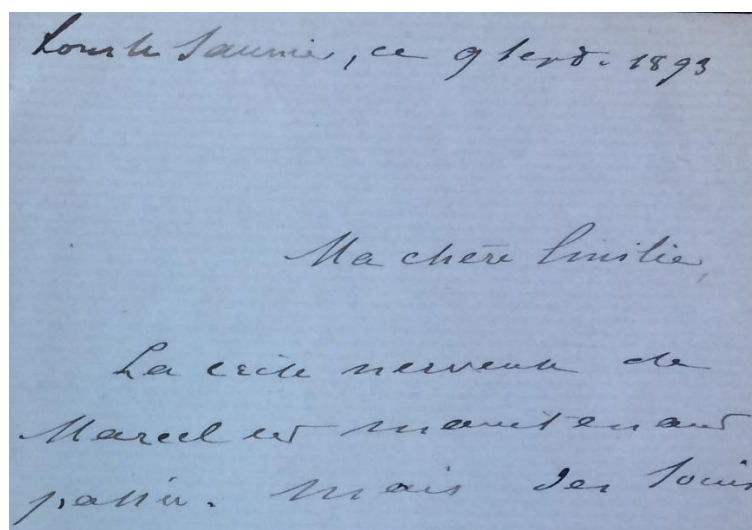 Lons le Saunier, ce 9 Sept. 1893
Ma chère Emilie,
La crise nerveuse de
Marcel est maintenant
passée. Mais des soins